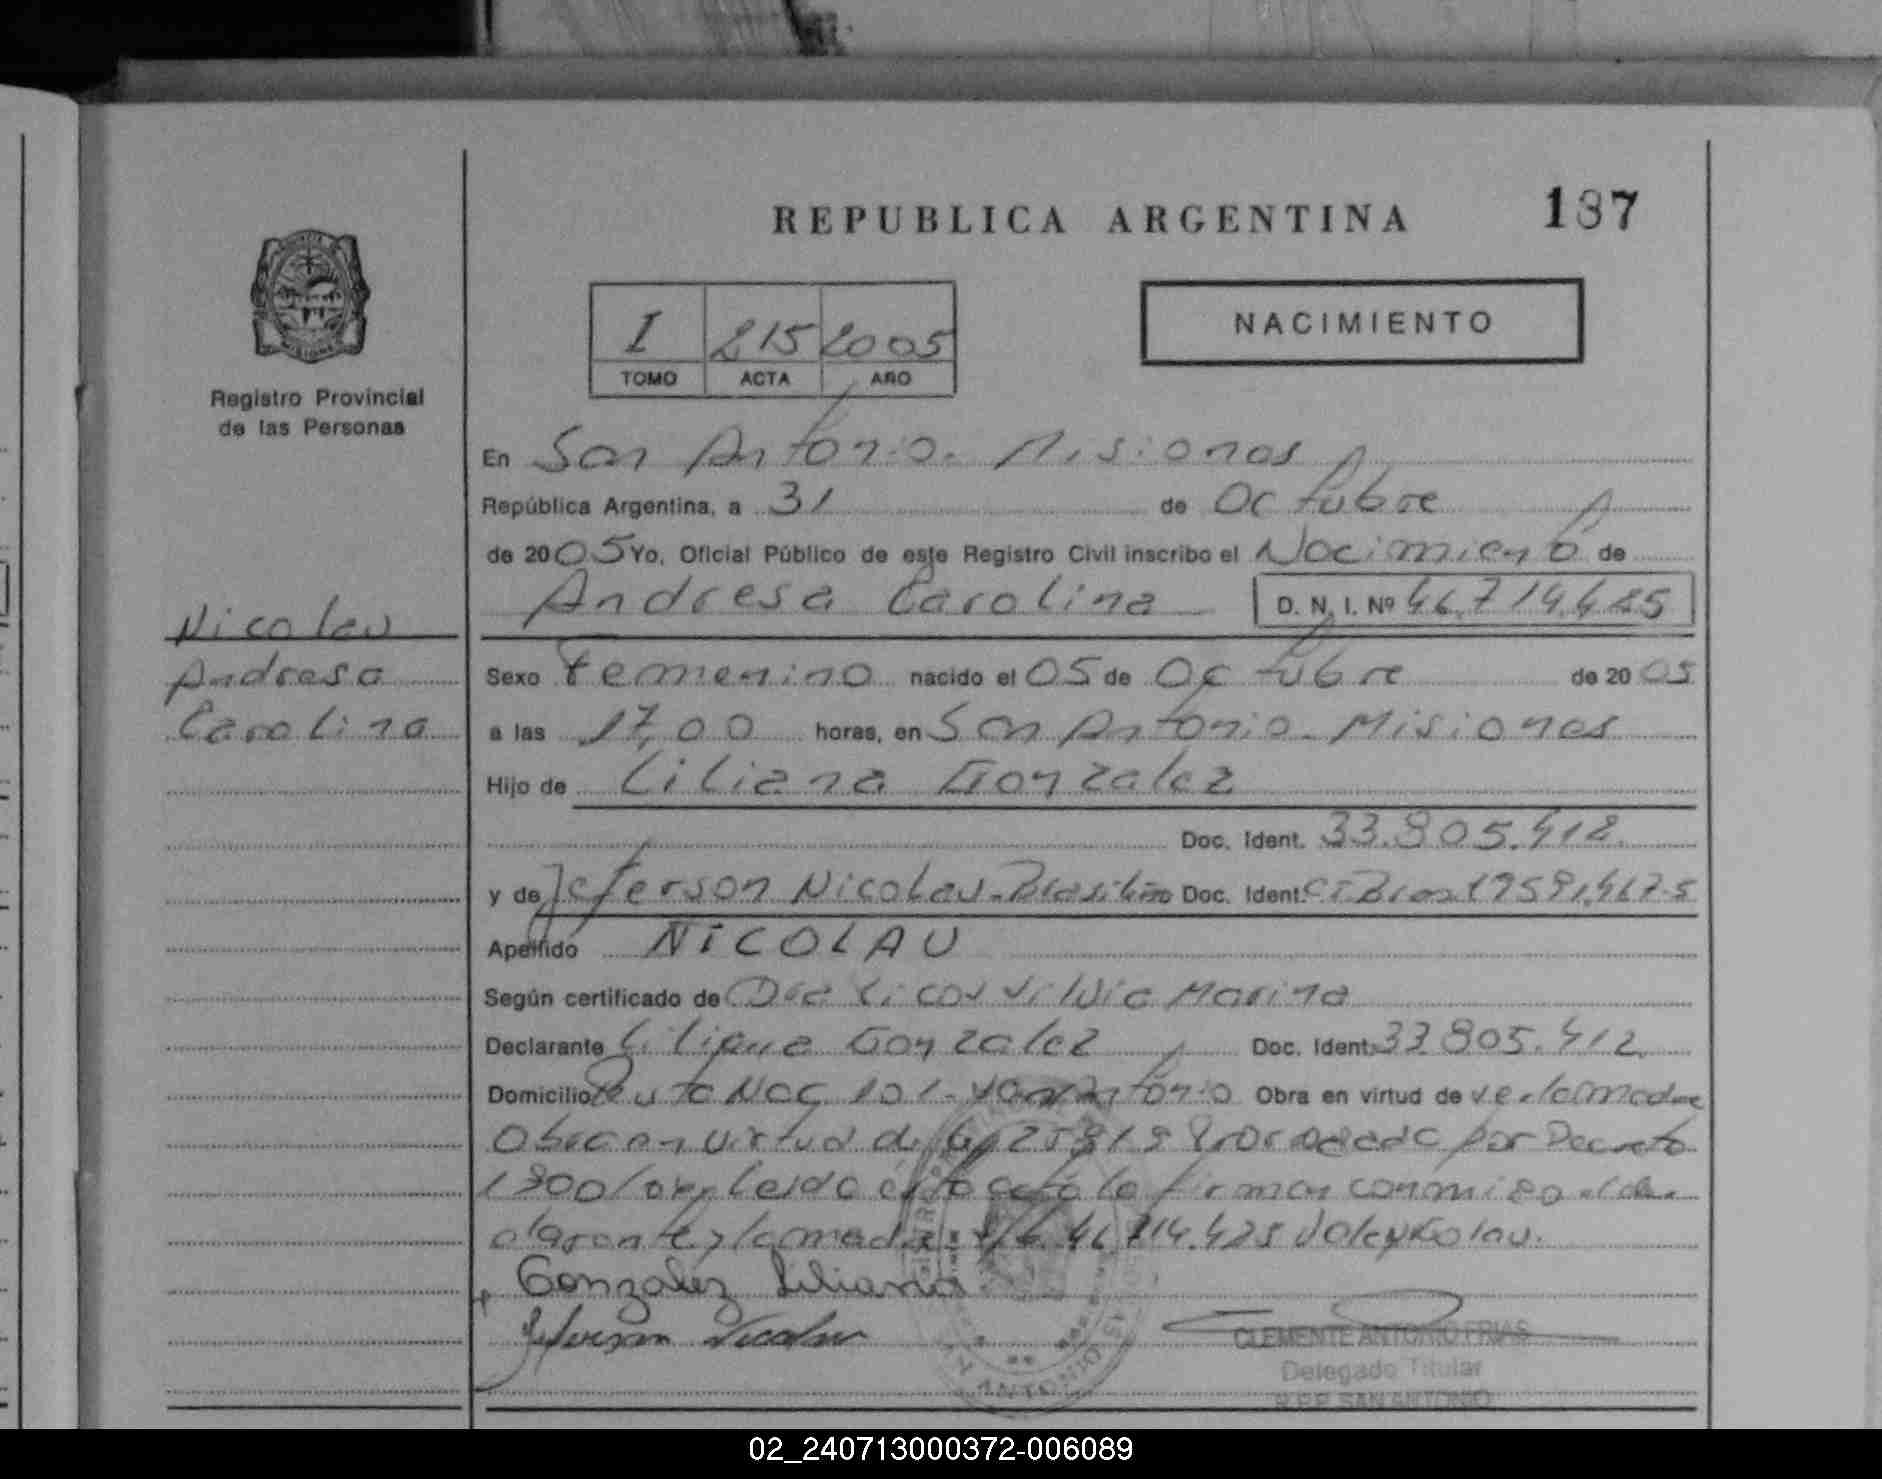 REPUBLICA ARGENTINA
187
Registro Provincial
de las Personas
I 215 2005
TOMO ACTA AÑO
NACIMIENTO
En San Antonio. Misiones
República Argentina, a 31 de Octubre
de 2005 Yo, Oficial Público de este Registro Civil inscribo el Nacimiento de
Andresa Carolina D. N. I. Nº 46.714.425
Nicolau
Andresa
Carolina
Sexo Femenino nacido el 05 de Octubre de 2005
a las 17,00 horas, en San Antonio. Misiones
Hijo de Liliana Gonzalez
Doc. Ident. 33.805.412
y de Jeferson Nicolau-Brasileño Doc. Ident.
Apellido NICOLAU
Según certificado de Dra Silvia Marina
Declarante Liliana Gonzalez Doc. Ident. 33.805.412
Domicilio Ruta Nac 101-San Antonio Obra en virtud de
Obra en virtud de por Decreto
Leido esta acta la firman conmigo el de-
clarante y la madre 46.714.425 Vale Nicolau.
Gonzalez Liliana
Jeferson Nicolau
CLEMENTE ANTONIO FRIAS
Delegado Titular
R.P.P. SAN ANTONIO
02_240713000372-006089